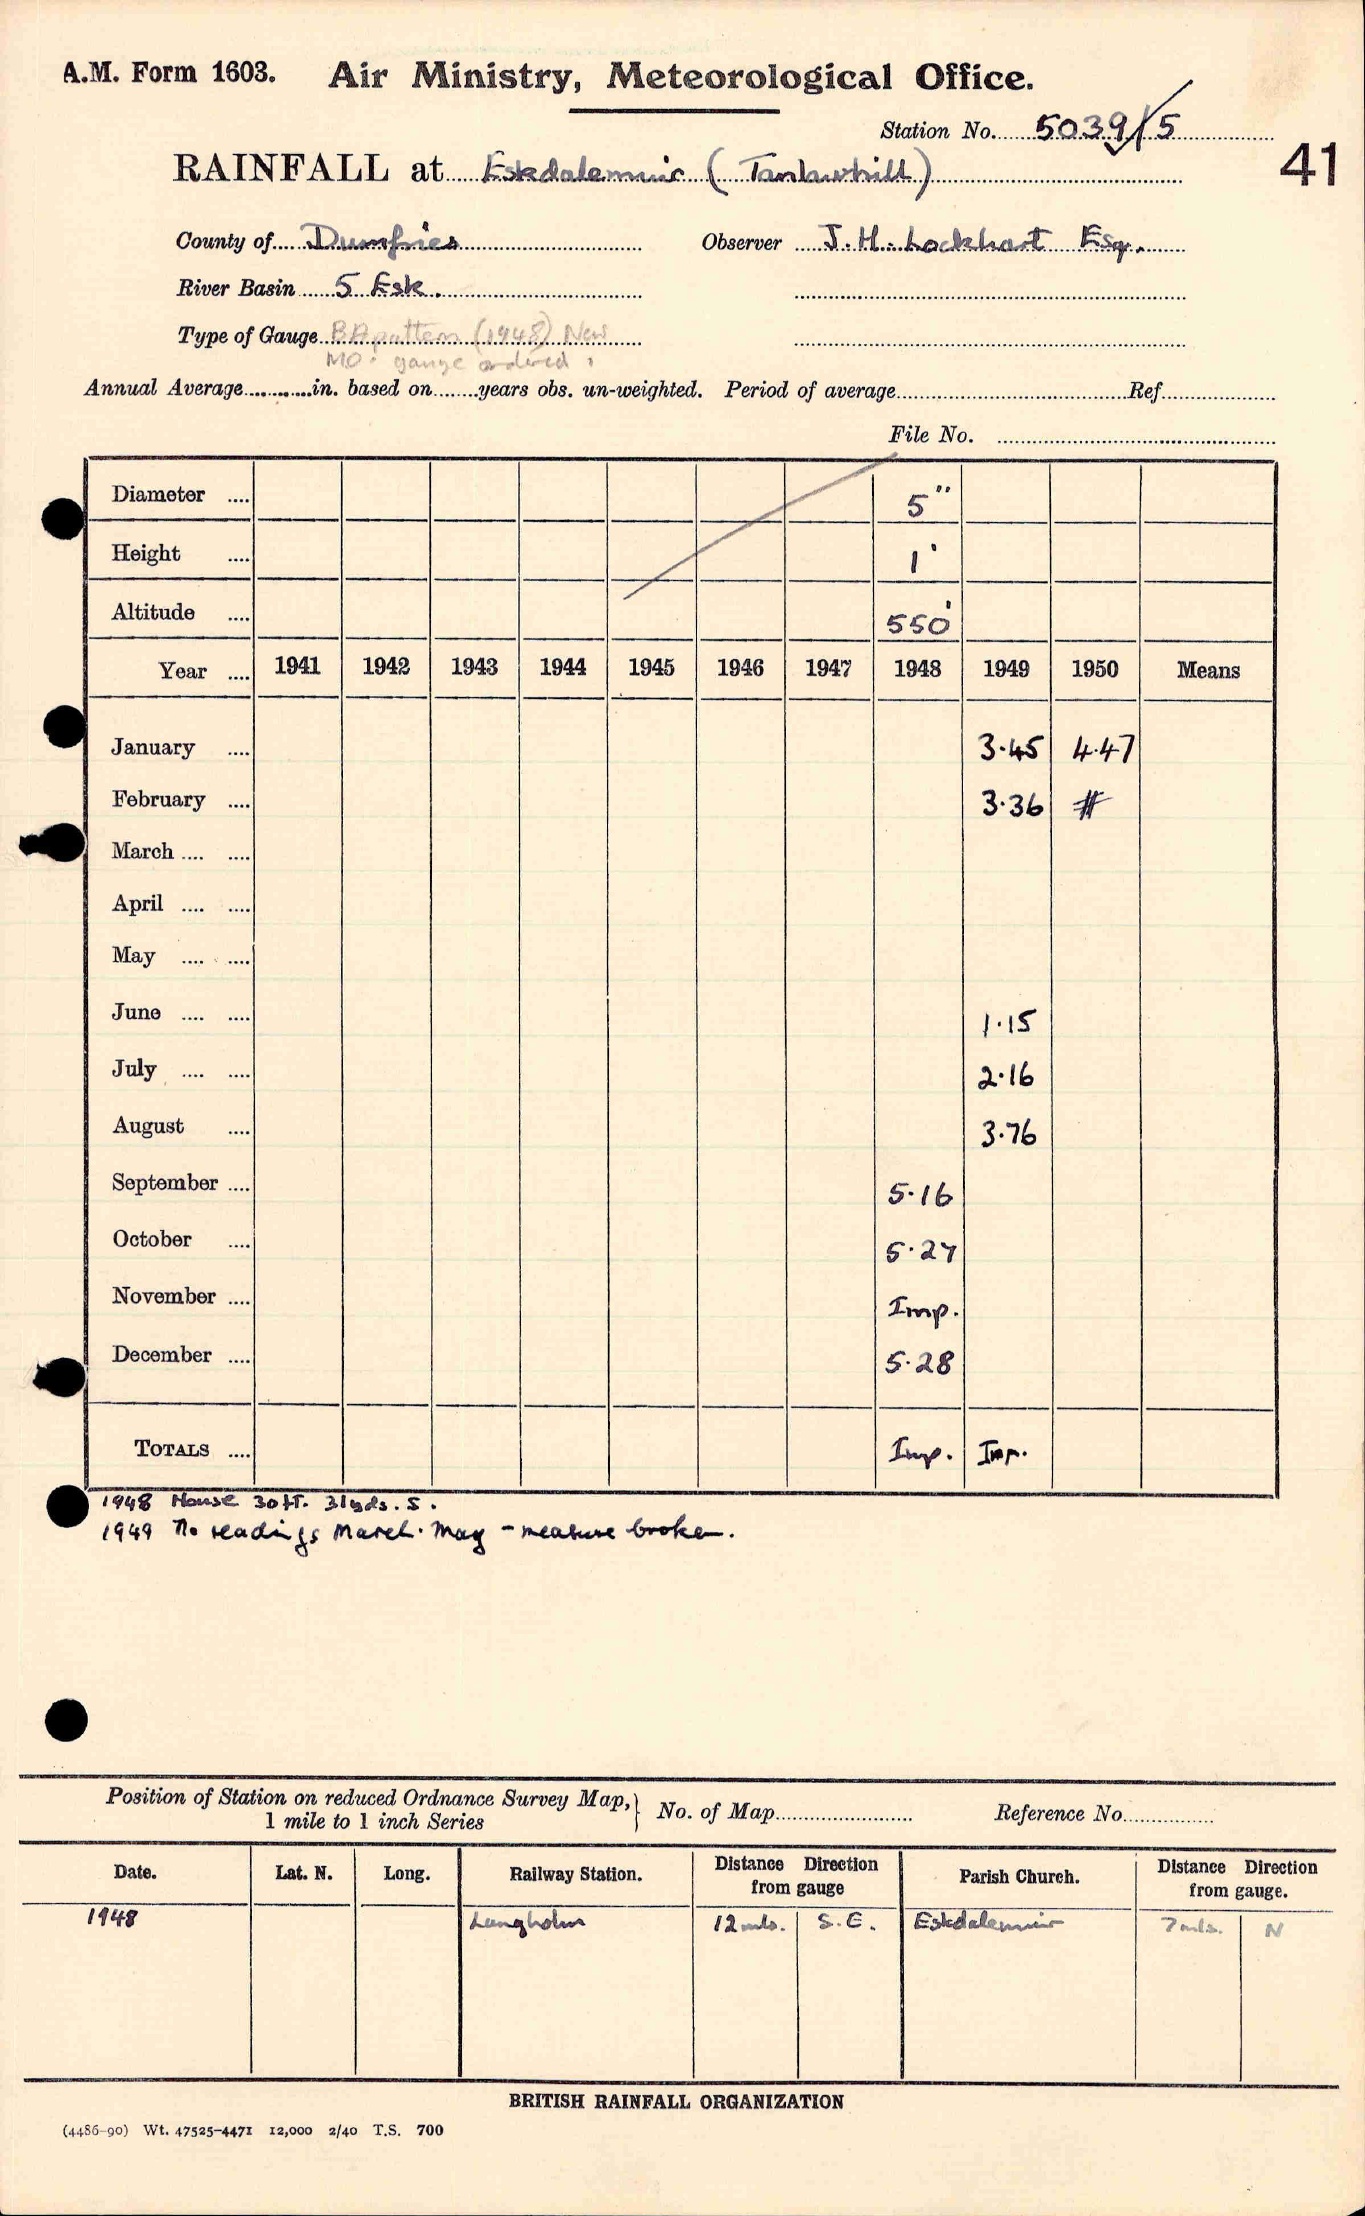 A.M. Form 1603. Air Ministry, Meteorological Office.
Station No. 5039/5
41
RAINFALL at Eskdalemuir (Tanlawhill)
County of Dumfries Observer J.H. Lockhart Esq.
River Basin 5 Esk.
Type of Gauge BA pattern (1948) New
MO. gauge ordered
Annual Average............in. based on........years obs. un-weighted. Period of average........Ref........
File No. ........
Diameter .... 5"
Height .... 1'
Altitude .... 550'
Year .... 1941 1942 1943 1944 1945 1946 1947 1948 1949 1950 Means
January .... 3.45 4.47
February .... 3.36 #
March .... ....
April .... ....
May .... ....
June .... .... 1.15
July .... .... 2.16
August .... 3.76
September .... 5.16
October .... 5.27
November .... Imp.
December .... 5.28
TOTALS .... Imp. Imp.
1948 House 30ft. 31yds. S.
1949 No readings March-May - measure broken.
Position of Station on reduced Ordnance Survey Map, 1 mile to 1 inch Series } No. of Map........ Reference No........
Date. Lat. N. Long. Railway Station. Distance Direction from gauge Parish Church. Distance Direction from gauge.
1948 Langholm 12 mls. S.E. Eskdalemuir 7 mls. N
BRITISH RAINFALL ORGANIZATION
(4486-90) Wt. 47525-4471 12,000 2/40 T.S. 700